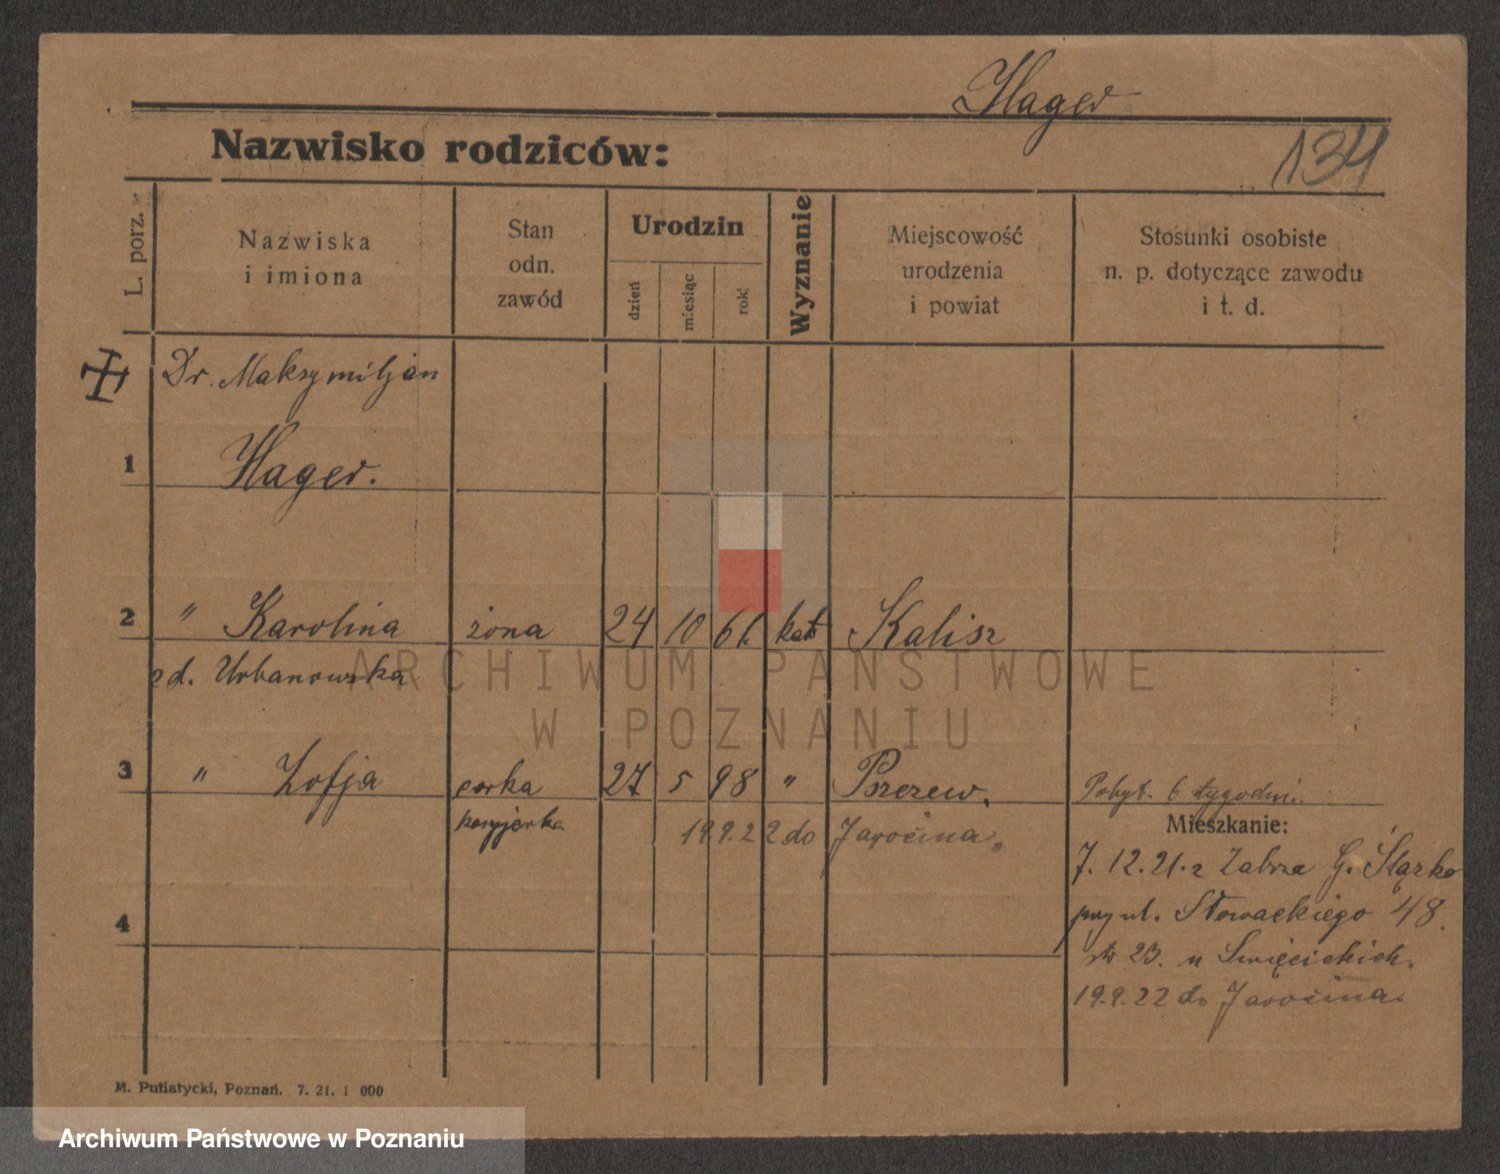 Hager
134
Nazwisko rodziców:
L. porz.
Nazwiska
i imiona
Stan
odn.
zawód
Urodzin
dzień
miesiąc
rok
Wyznanie
Miejscowość
urodzenia
i powiat
Stosunki osobiste
n. p. dotyczące zawodu
i t. d.
Dr. Maksymiljan
1 Hager.
2 " Karolina żona 24 10 61. kat Kalisz
Urbanowska
ARCHIWUM PAŃSTWOWE
W POZNANIU
3 " Zofja corka 27 5 98 " Pszczew. Pobyt. 6 tygodni.
kasyjerka 19.9.22 do Jarocina.
Mieszkanie:
7. 12. 21. z Zabrza G. Śląsko
przy ul. Słowackiego 48.
23. u Święcickich.
19.9.22 do Jarocina.
4
M. Putiatycki, Poznań. 7. 21. 1 000
Archiwum Państwowe w Poznaniu